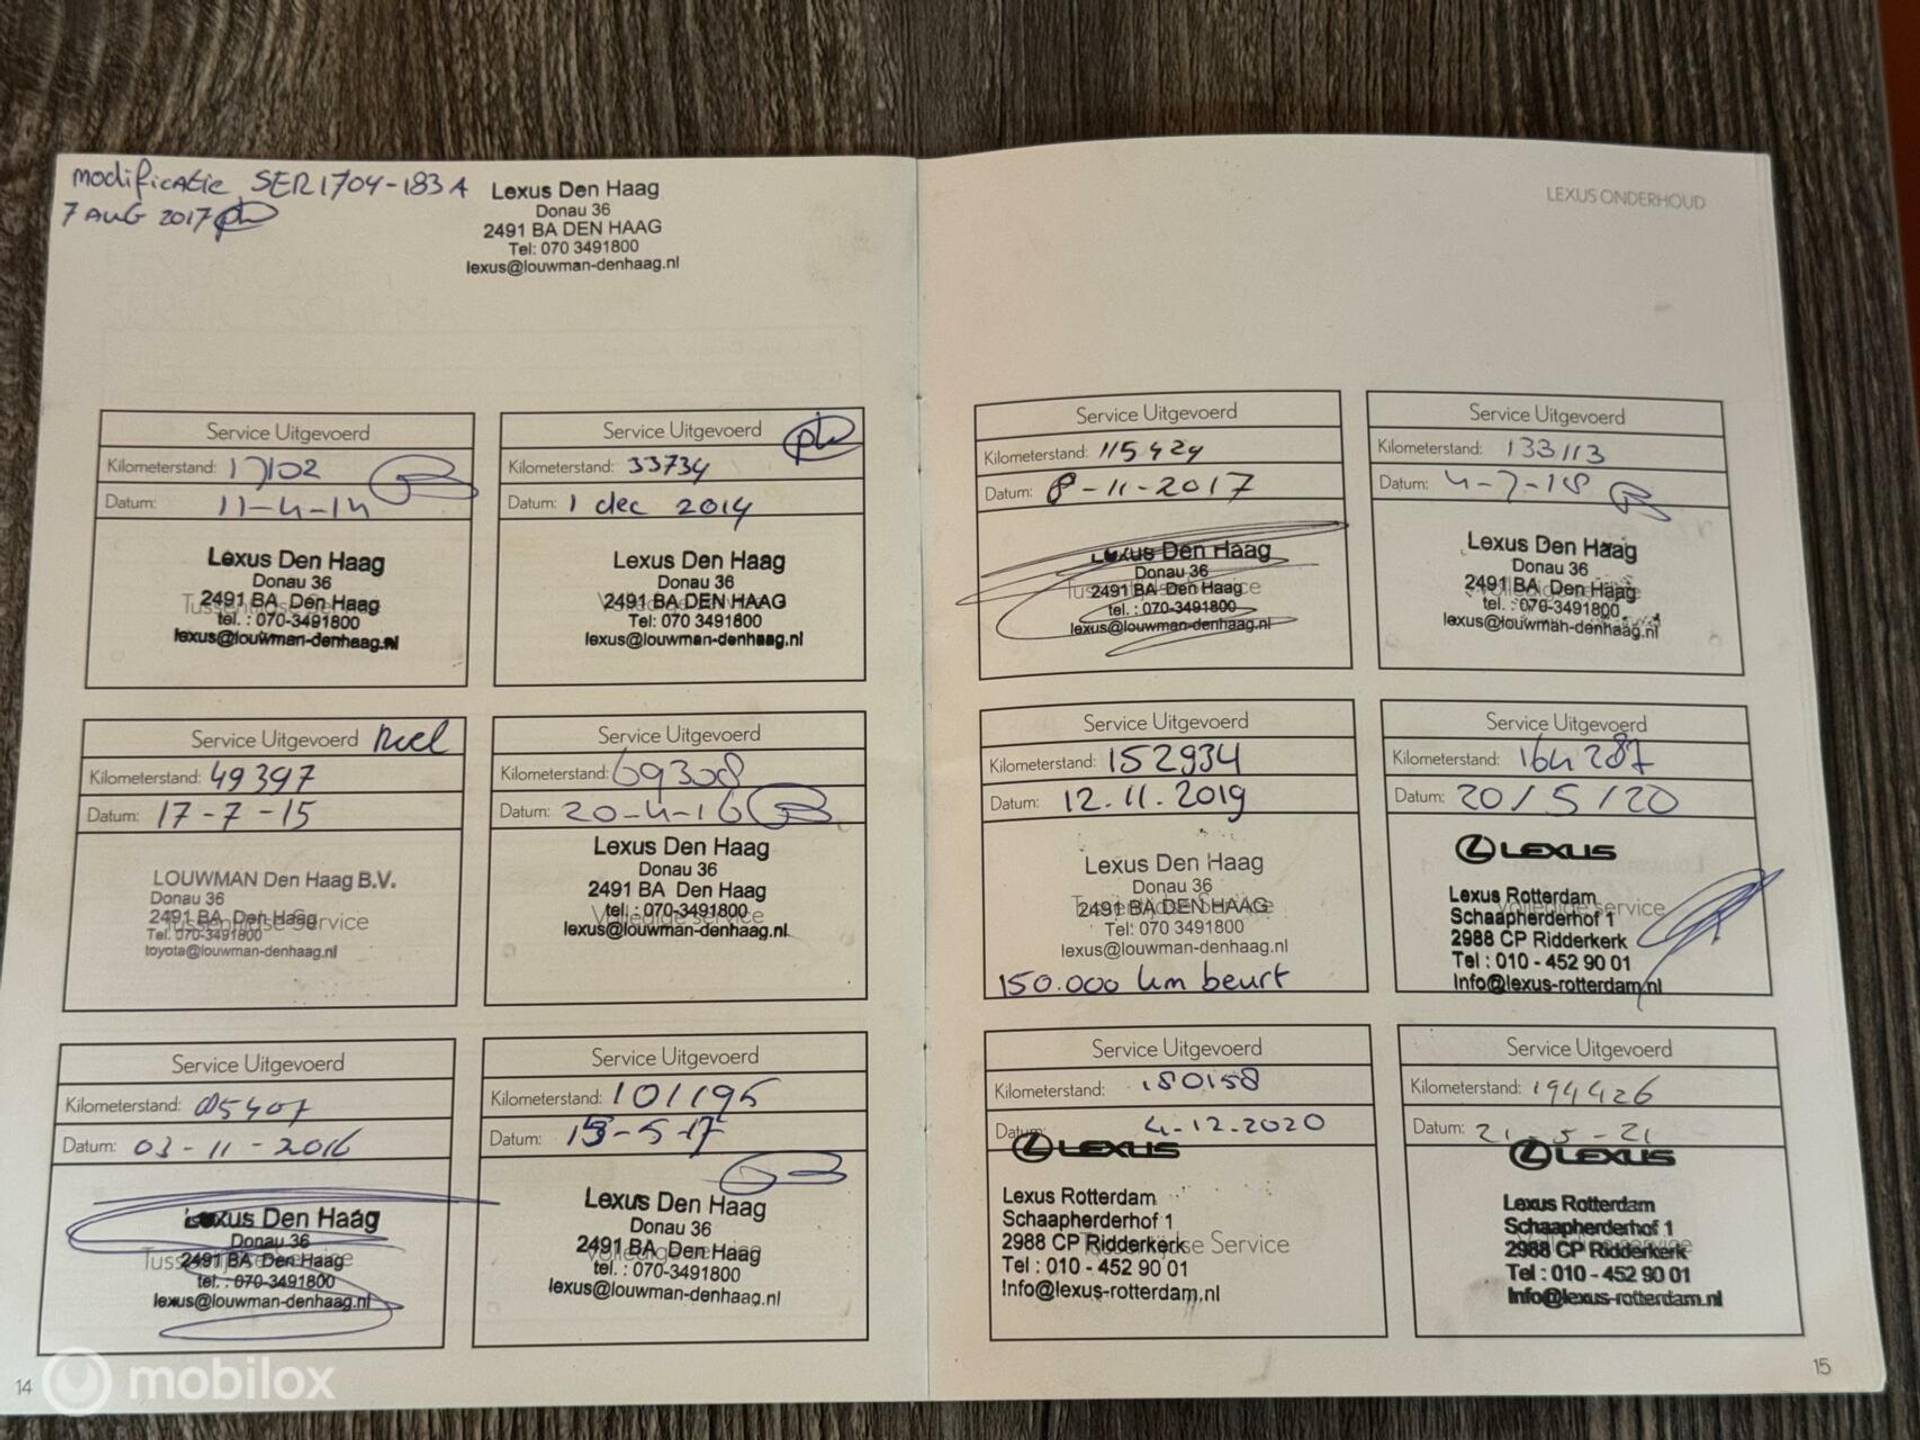 modificatie SER1704-183A
7 AUG 2017
Lexus Den Haag
Donau 36
2491 BA DEN HAAG
Tel: 070 3491800
lexus@louwman-denhaag.nl
Service Uitgevoerd
Kilometerstand: 17102
Datum: 11-4-14
Lexus Den Haag
Donau 36
2491 BA Den Haag
Tussentijdse Service
tel. : 070-3491800
lexus@louwman-denhaag.nl
Service Uitgevoerd
Kilometerstand: 33734
Datum: 1 dec 2014
Lexus Den Haag
Donau 36
2491 BA DEN HAAG
Volledige service
Tel: 070 3491800
lexus@louwman-denhaag.nl
Service Uitgevoerd
Kilometerstand: 49397
Datum: 17-7-15
LOUWMAN Den Haag B.V.
Donau 36
2491 BA Den Haag
Tussentijdse Service
Tel. 070-3491800
toyota@louwman-denhaag.nl
Service Uitgevoerd
Kilometerstand: 69308
Datum: 20-4-16
Lexus Den Haag
Donau 36
2491 BA Den Haag
Volledige service
tel. : 070-3491800
lexus@louwman-denhaag.nl
Service Uitgevoerd
Kilometerstand:
Datum: 03-11-2016
Lexus Den Haag
Donau 36
2491 BA Den Haag
Tussentijdse Service
tel. : 070-3491800
lexus@louwman-denhaag.nl
Service Uitgevoerd
Kilometerstand: 101195
Datum:
Lexus Den Haag
Donau 36
2491 BA Den Haag
Volledige service
tel. : 070-3491800
lexus@louwman-denhaag.nl
14
mobilox
LEXUS ONDERHOUD
Service Uitgevoerd
Kilometerstand: 115424
Datum: 8-11-2017
Lexus Den Haag
Donau 36
2491 BA Den Haag
Tussentijdse Service
tel. : 070-3491800
lexus@louwman-denhaag.nl
Service Uitgevoerd
Kilometerstand: 133113
Datum: 4-7-18
Lexus Den Haag
Donau 36
2491 BA Den Haag
Volledige service
tel. : 070-3491800
lexus@louwman-denhaag.nl
Service Uitgevoerd
Kilometerstand: 152934
Datum: 12.11.2019
Lexus Den Haag
Donau 36
2491 BA DEN HAAG
Tussentijdse Service
Tel: 070 3491800
lexus@louwman-denhaag.nl
150.000 km beurt
Service Uitgevoerd
Kilometerstand: 164287
Datum: 20/5/20
LEXUS
Lexus Rotterdam
Schaapherderhof 1
Volledige service
2988 CP Ridderkerk
Tel : 010 - 452 90 01
Info@lexus-rotterdam.nl
Service Uitgevoerd
Kilometerstand: 180158
Datum: 4-12-2020
LEXUS
Lexus Rotterdam
Schaapherderhof 1
2988 CP Ridderkerk
Tussentijdse Service
Tel : 010 - 452 90 01
Info@lexus-rotterdam.nl
Service Uitgevoerd
Kilometerstand: 194426
Datum: 21-5-21
LEXUS
Lexus Rotterdam
Schaapherderhof 1
2988 CP Ridderkerk
Volledige service
Tel : 010 - 452 90 01
Info@lexus-rotterdam.nl
15